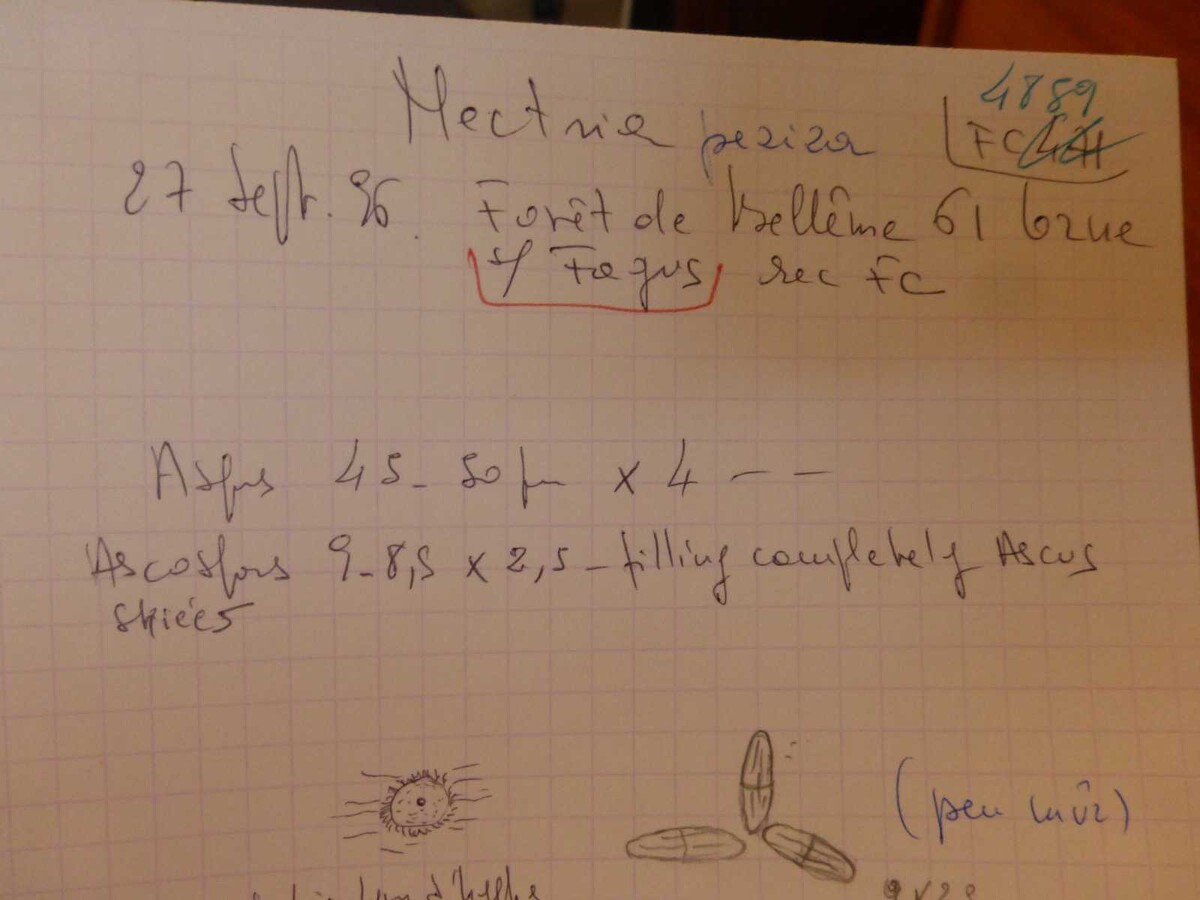 4889
Nectria peziza FC
27 Sept. 96. Forêt de Bellême 61 Orne
s/ Fagus rec FC
Aspus 45-50 µm x 4 --
Ascospors 9-8,5 x 2,5 - filling completely Ascus
striées
(peu mûr)